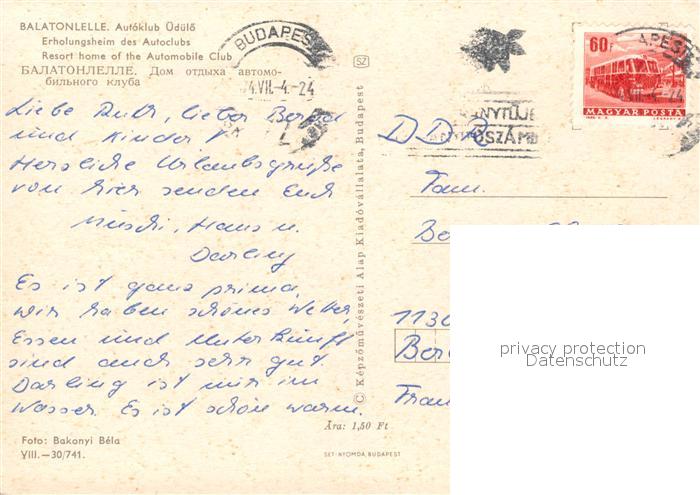 BALATONLELLE. Autóklub Üdülő
Erholungsheim des Autoclubs
Resort home of the Automobile Club
БАЛАТОНЛЕЛЛЕ. Дом отдыха автомо-
бильного клуба
Liebe Ruth, lieber Bernd
und Kinder!
Herzliche Urlaubsgrüße
von hier senden Euch
Hans u.
Darling
Es ist ganz prima,
wir haben schönes Wetter,
Essen und Unterkunft
sind auch sehr gut.
Darling ist nur im
Wasser. Es ist schön warm.
Foto: Bakonyi Béla
VIII.—30/741.
BUDAPEST
74.VII.-4.-24
SZ
© Képzőművészeti Alap Kiadóvállalata, Budapest
Ára: 1,50 Ft
SET-NYOMDA, BUDAPEST
60f
MAGYAR POSTA
APEST
VII.-4.-24
DDR
Fam.
1130
Ber
privacy protection
Datenschutz